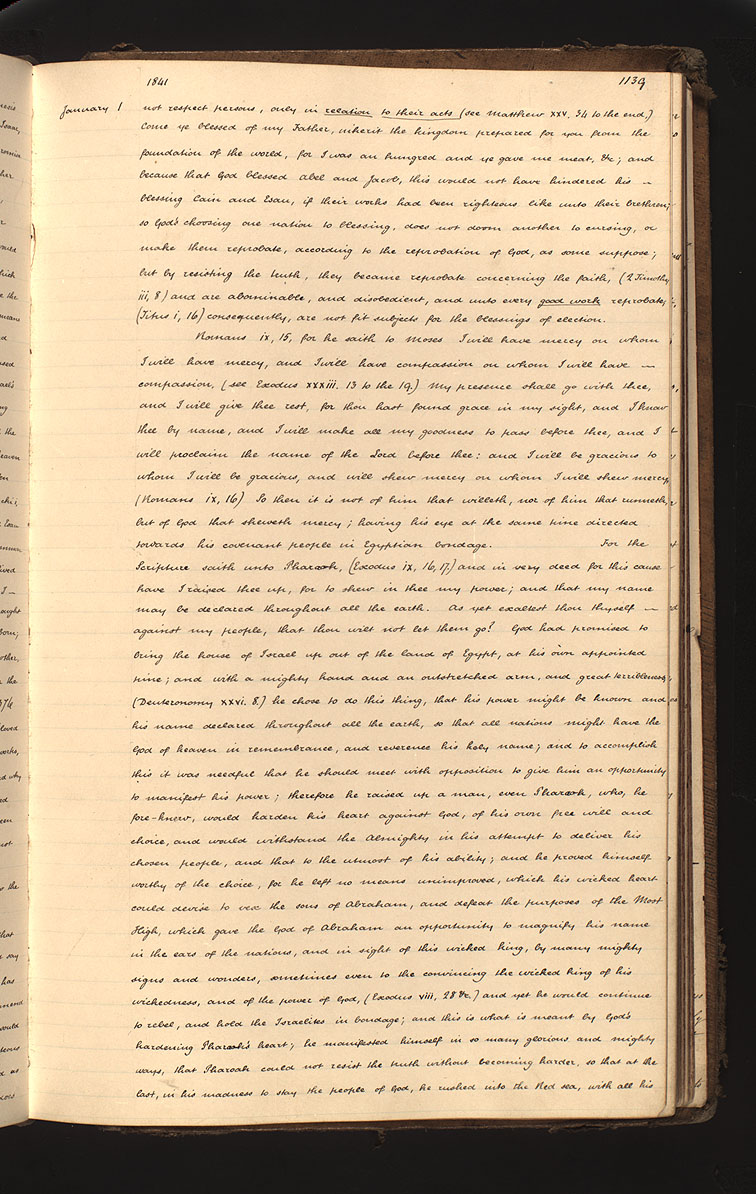 1841 1139
January 1 not respect persons, only in relation to their acts (see Matthew XXV. 34 to the end,)
Come ye blessed of my Father, inherit the kingdom prepared for you from the
foundation of the world, for I was an hungred and ye gave me meat, &c; and
because that God blessed Abel and Jacob, this would not have hindered his –
blessing Cain and Esau, if their works had been righteous like unto their brethren;
so God's choosing one nation to blessing, does not doom another to cursing, or
make them reprobate, according to the reprobation of God, as some suppose;
but by resisting the truth, they became reprobate concerning the faith, (2 Timothy
iii, 8) and are abominable, and disobedient, and unto every good work reprobate,
(Titus i, 16) consequently, are not fit subjects for the blessings of election.
Romans ix, 15, for he saith to Moses I will have mercy on whom
I will have mercy, and I will have compassion on whom I will have –
compassion, (see Exodus XXXiii. 13 to the 19,) My presence shall go with thee,
and I will give thee rest, for thou hast found grace in my sight, and I know
thee by name, and I will make all my goodness to pass before thee, and I
will proclaim the name of the Lord before thee: and I will be gracious to
whom I will be gracious, and will shew mercy on whom I will shew mercy,
(Romans ix, 16) So then it is not of him that willeth, nor of him that runneth,
but of God that sheweth mercy; having his eye at the same time directed
towards his covenant people in Egyptian bondage. For the
Scripture saith unto Pharaoh, (Exodus ix, 16, 17,) and in very deed for this cause
have I raised thee up, for to shew in thee my power; and that my name
may be declared throughout all the earth. As yet exaltest thou thyself –
against my people, that thou wilt not let them go? God had promised to
bring the house of Israel up out of the land of Egypt, at his own appointed
time; and with a mighty hand and an outstretched arm, and great terribleness,
(Deuteronomy XXVI. 8.) he chose to do this thing, that his power might be known and
his name declared throughout all the earth, so that all nations might have the
God of heaven in remembrance, and reverence his holy name; and to accomplish
this it was needful that he should meet with opposition to give him an opportunity
to manifest his power; therefore he raised up a man, even Pharaoh, who, he
fore-knew, would harden his heart against God, of his own free will and
choice, and would withstand the Almighty in his attempt to deliver his
chosen people, and that to the utmost of his ability; and he proved himself
worthy of the choice, for he left no means unimproved, which his wicked heart
could devise to vex the sons of Abraham, and defeat the purposes of the Most
High, which gave the God of Abraham an opportunity to magnify his name
in the ears of the nations, and in sight of this wicked king, by many mighty
signs and wonders, sometimes even to the convincing the wicked king of his
wickedness, and of the power of God, (Exodus viii, 28 &c.) and yet he would continue
to rebel, and hold the Israelites in bondage; and this is what is meant by God's
hardening Pharaoh's heart; he manifested himself in so many glorious and mighty
ways, that Pharoah could not resist the truth without becoming harder, so that at the
last, in his madness to stay the people of God, he rushed into the Red sea, with all his